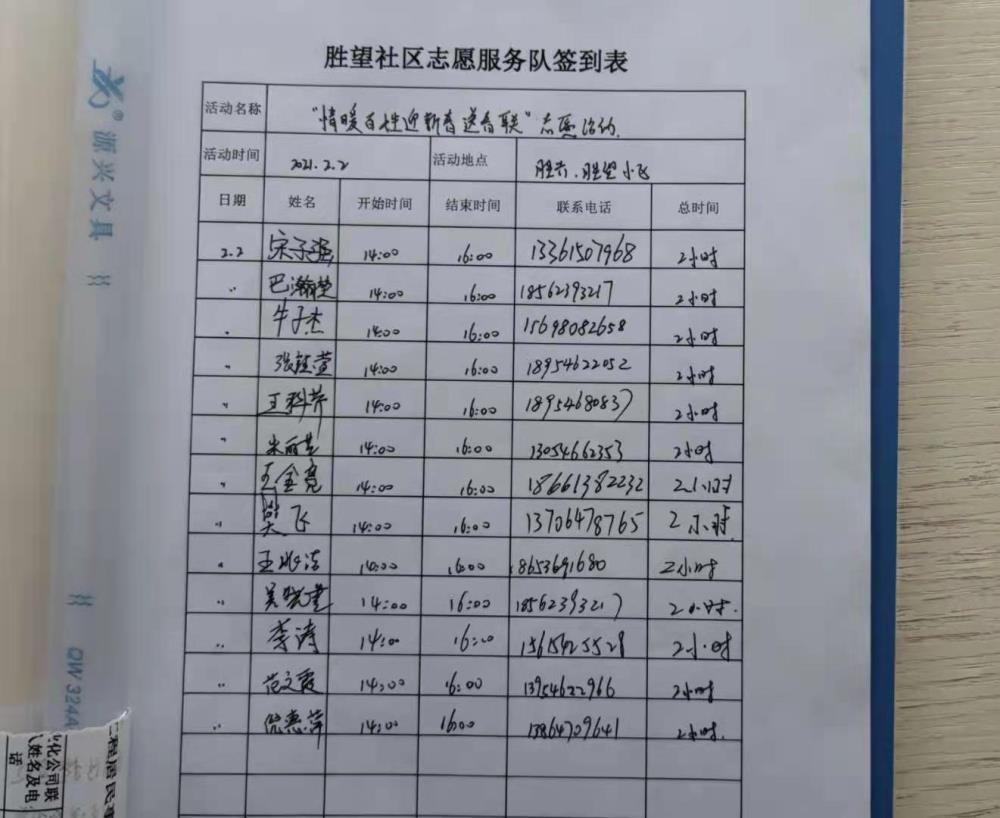 胜望社区志愿服务队签到表
活动名称 "情暖百姓迎新春送春联"志愿活动.
活动时间 2021.2.2 活动地点 胜
日期 姓名 开始时间 结束时间 联系电话 总时间
2.2 宋子强 14:00 16:00 13361507968 2小时
〃 巴瀚 14:00 16:00 18562393217 2小时
〃 牛子杰 14:00 16:00 15698082658 2小时
〃 张 萱 14:00 16:00 18954622052 2小时
〃 王科芹 14:00 16:00 18954680837 2小时
〃 14:00 16:00 13054662353 2小时
〃 王金亮 14:00 16:00 18661382232 2小时
〃 樊飞 14:00 16:00 13706478765 2小时.
〃 王 洁 14:00 16:00 18653691680 2小时
〃 吴 14:00 16:00 18562393217 2小时.
〃 李涛 14:00 16:00 15615425528 2小时
〃 范文霞 14:00 16:00 13954622966 2小时
〃 倪惠萍 14:00 16:00 13864709641 2小时.
源兴文具
QW324A
工程居民
化公司联
姓名及电
话